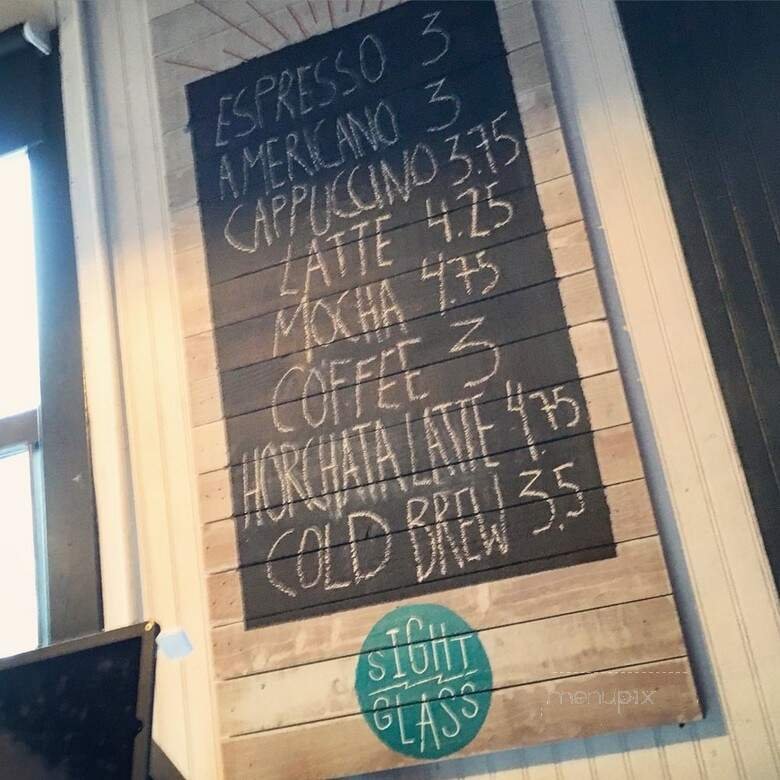 ESPRESSO 3
AMERICANO 3
CAPPUCCINO 3.75
LATTE 4.25
MOCHA 4.75
COFFEE 3
HORCHATA LATTE 4.75
COLD BREW 3.5
SIGHT
GLASS
menupix